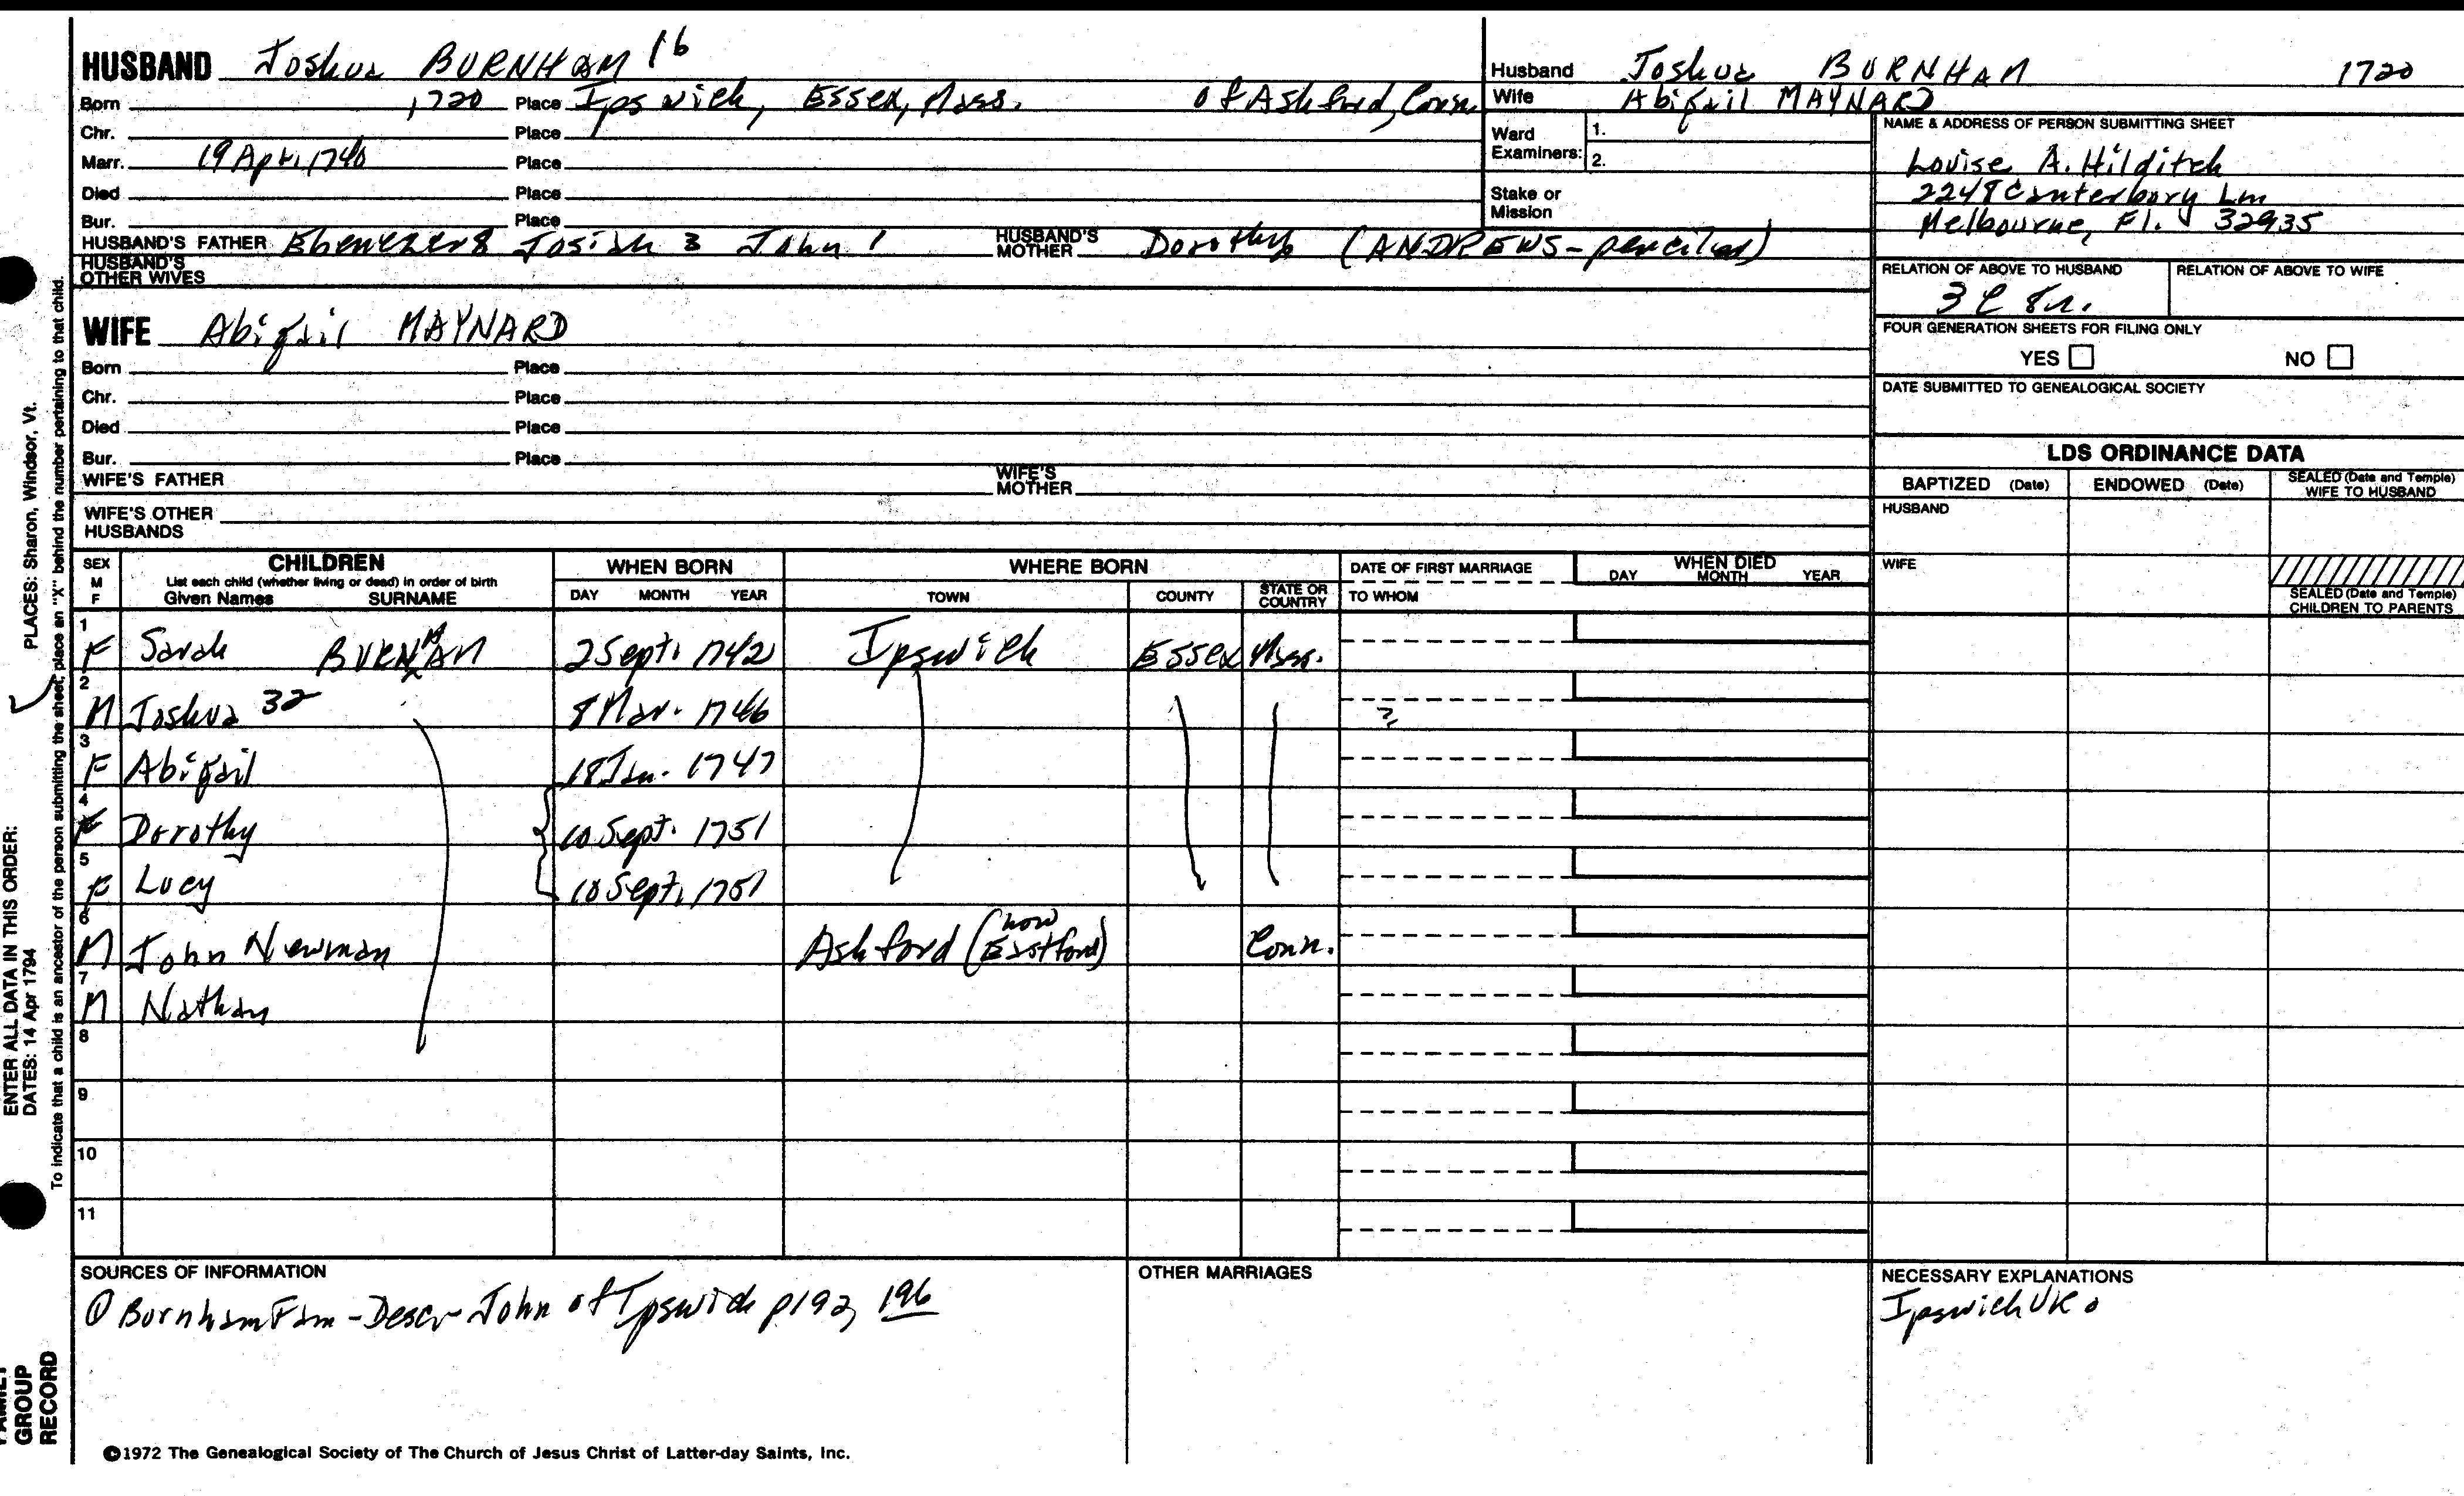 HUSBAND Joshua BURNHAM 16
Born 1720 Place Ipswich, Essex, Mass. of Ashford, Conn
Chr. Place
Marr. 19 Apr. 1740 Place
Died Place
Bur. Place
HUSBAND'S FATHER Ebenezer 8 Josiah 3 John 1 HUSBAND'S MOTHER Dorothy (ANDREWS - penciled)
HUSBAND'S OTHER WIVES
WIFE Abigail MAYNARD
Born Place
Chr. Place
Died Place
Bur. Place
WIFE'S FATHER WIFE'S MOTHER
WIFE'S OTHER HUSBANDS
Husband Joshua BURNHAM 1720
Wife Abigail MAYNARD
Ward Examiners: 1. 2.
Stake or Mission
NAME & ADDRESS OF PERSON SUBMITTING SHEET
Louise A. Hilditch
2248 Canterbury Ln
Melbourne, Fl. 32935
RELATION OF ABOVE TO HUSBAND RELATION OF ABOVE TO WIFE
3C 8r.
FOUR GENERATION SHEETS FOR FILING ONLY
YES NO
DATE SUBMITTED TO GENEALOGICAL SOCIETY
LDS ORDINANCE DATA
BAPTIZED (Date) ENDOWED (Date) SEALED (Date and Temple) WIFE TO HUSBAND
HUSBAND
WIFE
SEALED (Date and Temple) CHILDREN TO PARENTS
SEX M F
CHILDREN
List each child (whether living or dead) in order of birth
Given Names SURNAME
WHEN BORN
DAY MONTH YEAR
WHERE BORN
TOWN COUNTY STATE OR COUNTRY
DATE OF FIRST MARRIAGE
TO WHOM
WHEN DIED
DAY MONTH YEAR
1 F Sarah BURNHAM 2 Sept. 1742 Ipswich Essex Mass.
2 M Joshua 32 8 Mar. 1746 ?
3 F Abigail 18 Jan. 1747
4 F Dorothy 10 Sept. 1751
5 F Lucy 10 Sept. 1751
6 M John Newman Ashford (now Eastford) Conn.
7 M Nathan
8
9
10
11
SOURCES OF INFORMATION
① Burnham Fam - Desc - John of Ipswich p192, 196
OTHER MARRIAGES
NECESSARY EXPLANATIONS
Ipswich VR
©1972 The Genealogical Society of The Church of Jesus Christ of Latter-day Saints, Inc.
ENTER ALL DATA IN THIS ORDER:
DATES: 14 Apr 1794 PLACES: Sharon, Windsor, Vt.
To indicate that a child is an ancestor of the person submitting the sheet, place an "X" behind the number pertaining to that child.
FAMILY
GROUP
RECORD